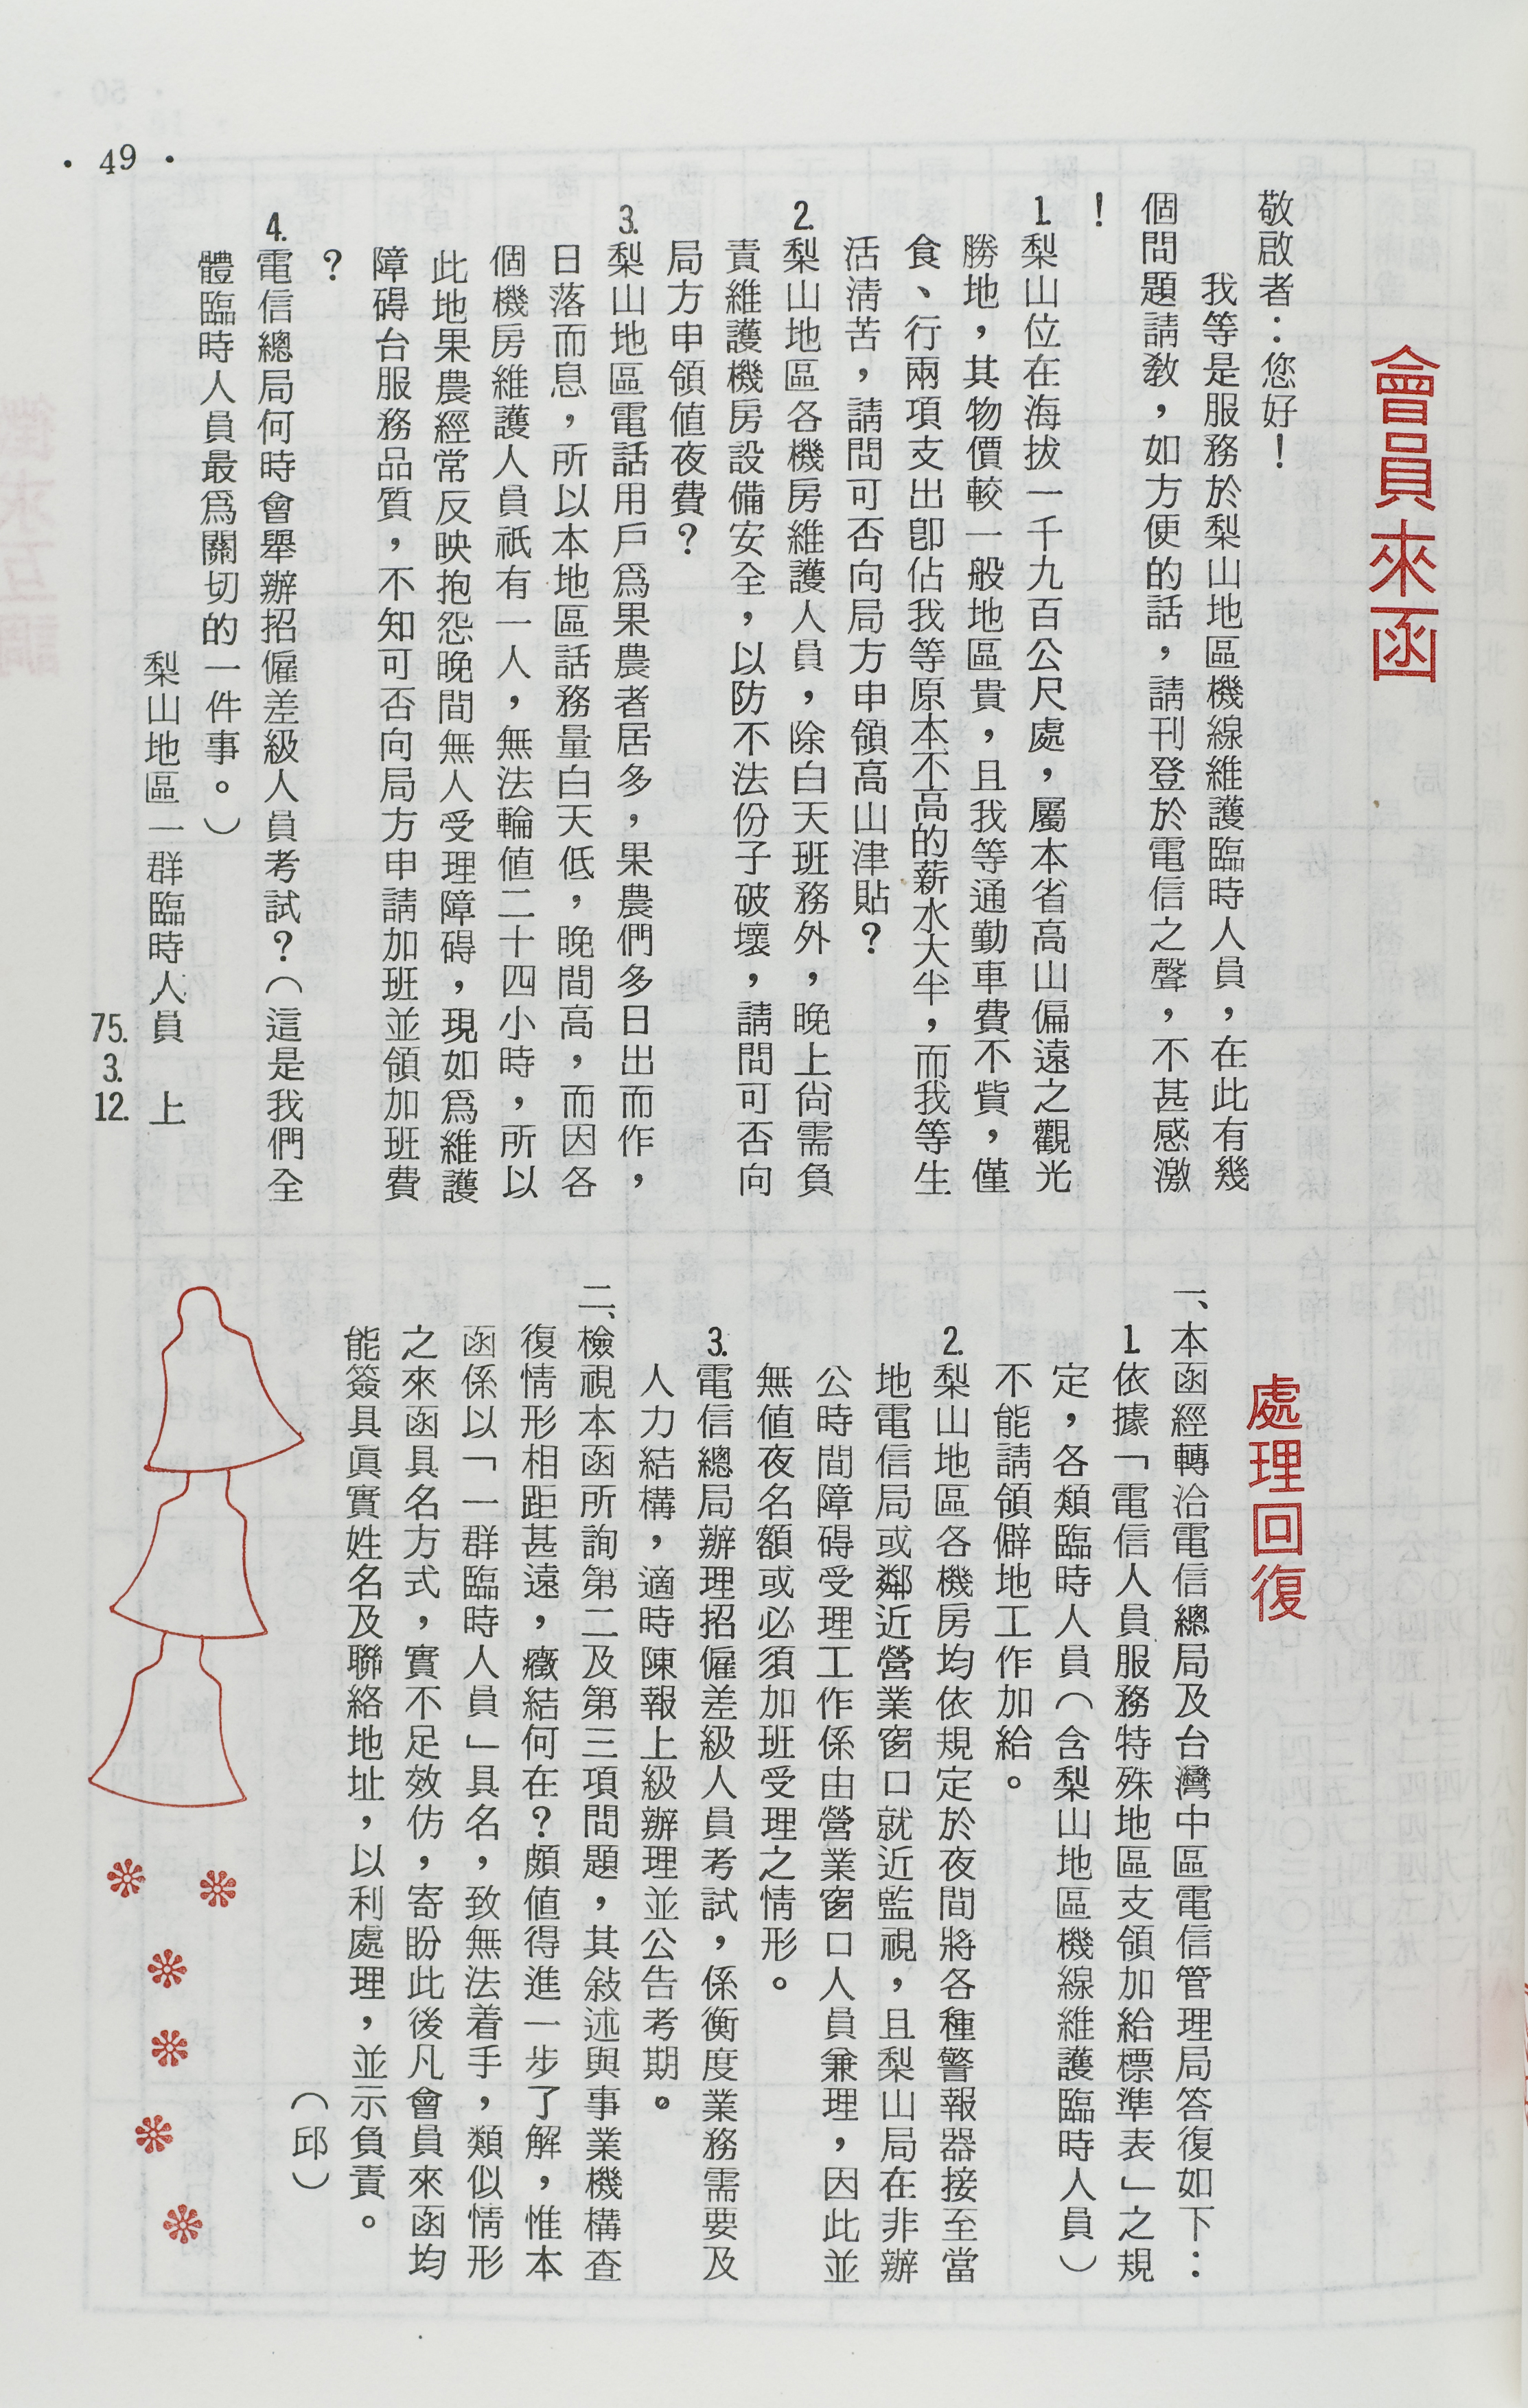 會員來函
敬啟者：您好！
我等是服務於梨山地區機線維護臨時人員，在此有幾
個問題請教，如方便的話，請刊登於電信之聲，不甚感激
！
1.梨山位在海拔一千九百公尺處，屬本省高山偏遠之觀光
勝地，其物價較一般地區貴，且我等通勤車費不貲，僅
食、行兩項支出卽佔我等原本不高的薪水大半，而我等生
活淸苦，請問可否向局方申領高山津貼？
2.梨山地區各機房維護人員，除白天班務外，晚上尙需負
責維護機房設備安全，以防不法份子破壞，請問可否向
局方申領値夜費？
3.梨山地區電話用戶爲果農者居多，果農們多日出而作，
日落而息，所以本地區話務量白天低，晚間高，而因各
個機房維護人員祇有一人，無法輪値二十四小時，所以
此地果農經常反映抱怨晚間無人受理障碍，現如爲維護
障碍台服務品質，不知可否向局方申請加班並領加班費
？
4.電信總局何時會舉辦招僱差級人員考試？（這是我們全
體臨時人員最爲關切的一件事。）
梨山地區一群臨時人員　上
75.3.12.
處理回復
一、本函經轉洽電信總局及台灣中區電信管理局答復如下：
1.依據「電信人員服務特殊地區支領加給標準表」之規
定，各類臨時人員（含梨山地區機線維護臨時人員）
不能請領僻地工作加給。
2.梨山地區各機房均依規定於夜間將各種警報器接至當
地電信局或鄰近營業窗口就近監視，且梨山局在非辦
公時間障碍受理工作係由營業窗口人員兼理，因此並
無値夜名額或必須加班受理之情形。
3.電信總局辦理招僱差級人員考試，係衡度業務需要及
人力結構，適時陳報上級辦理並公告考期。
二、檢視本函所詢第二及第三項問題，其敍述與事業機構查
復情形相距甚遠，癥結何在？頗値得進一步了解，惟本
函係以「一群臨時人員」具名，致無法着手，類似情形
之來函具名方式，實不足效仿，寄盼此後凡會員來函均
能簽具眞實姓名及聯絡地址，以利處理，並示負責。
（邱）
・49・